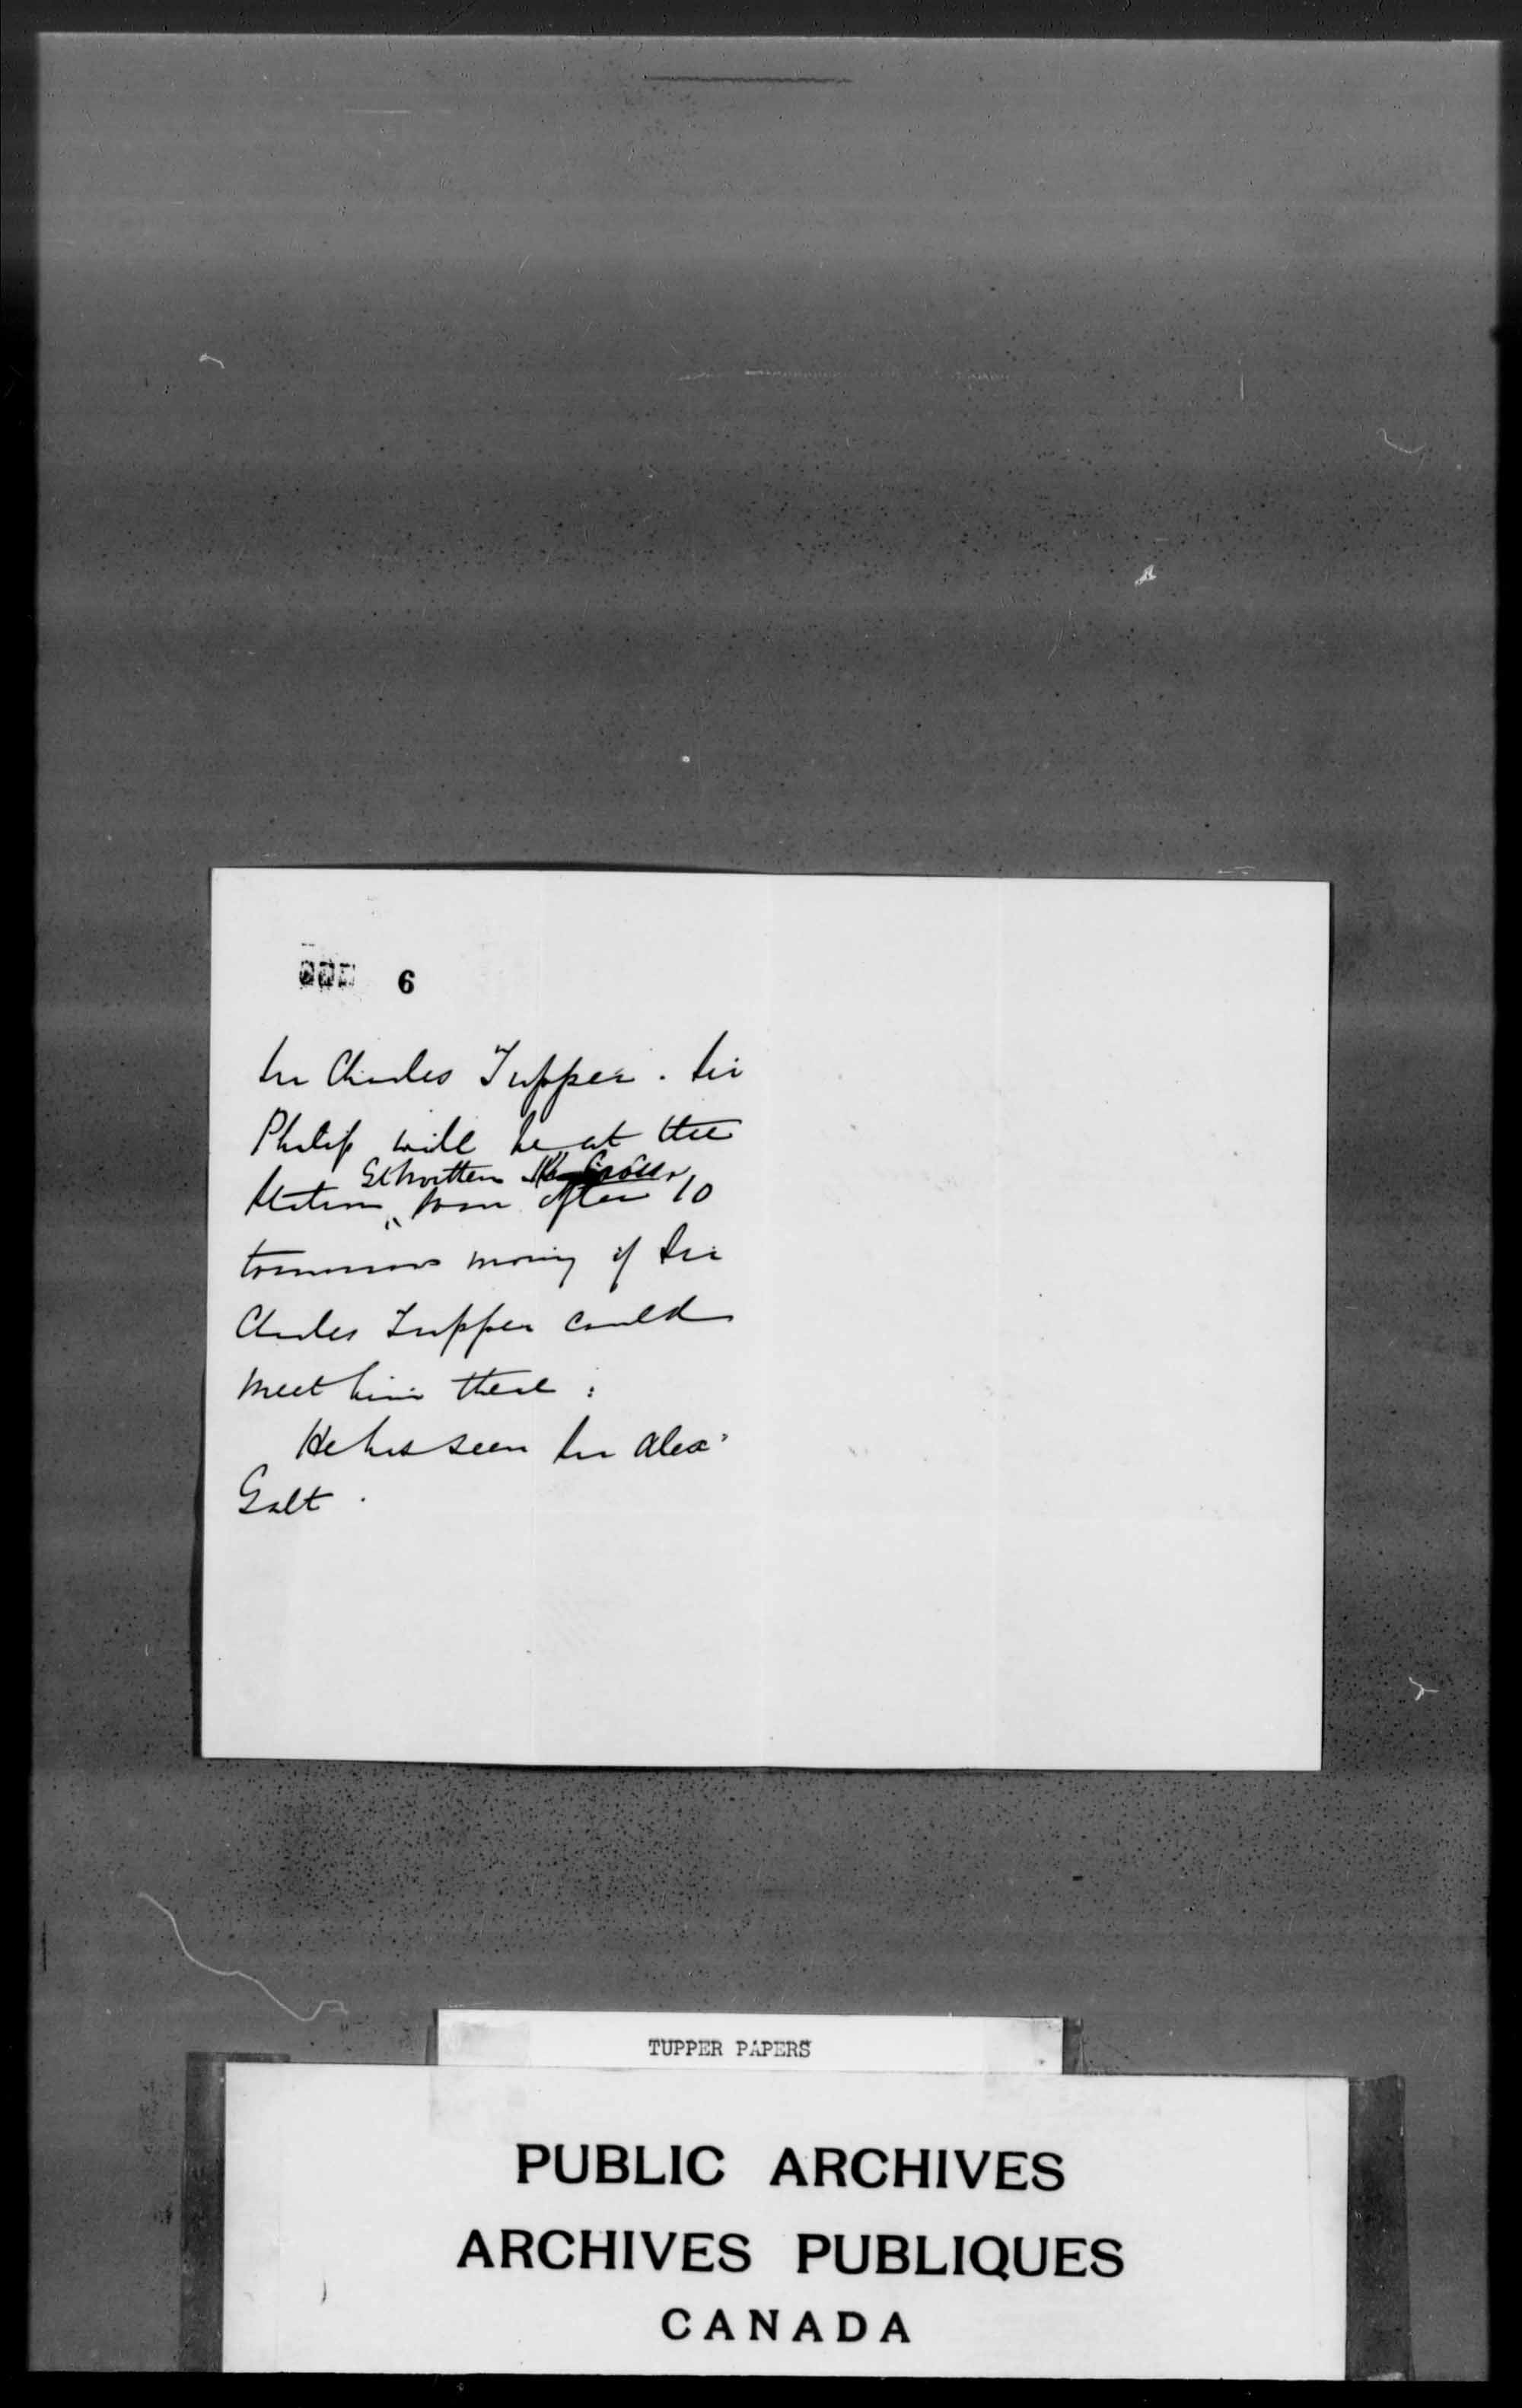 6
Sir Charles Tupper. Sir
Philip will be at the
Station soon after 10
tomorrow morng if Sir
Charles Tupper could
meet him there:
He has seen Sir Alexr
Galt.
TUPPER PAPERS
PUBLIC ARCHIVES
ARCHIVES PUBLIQUES
CANADA